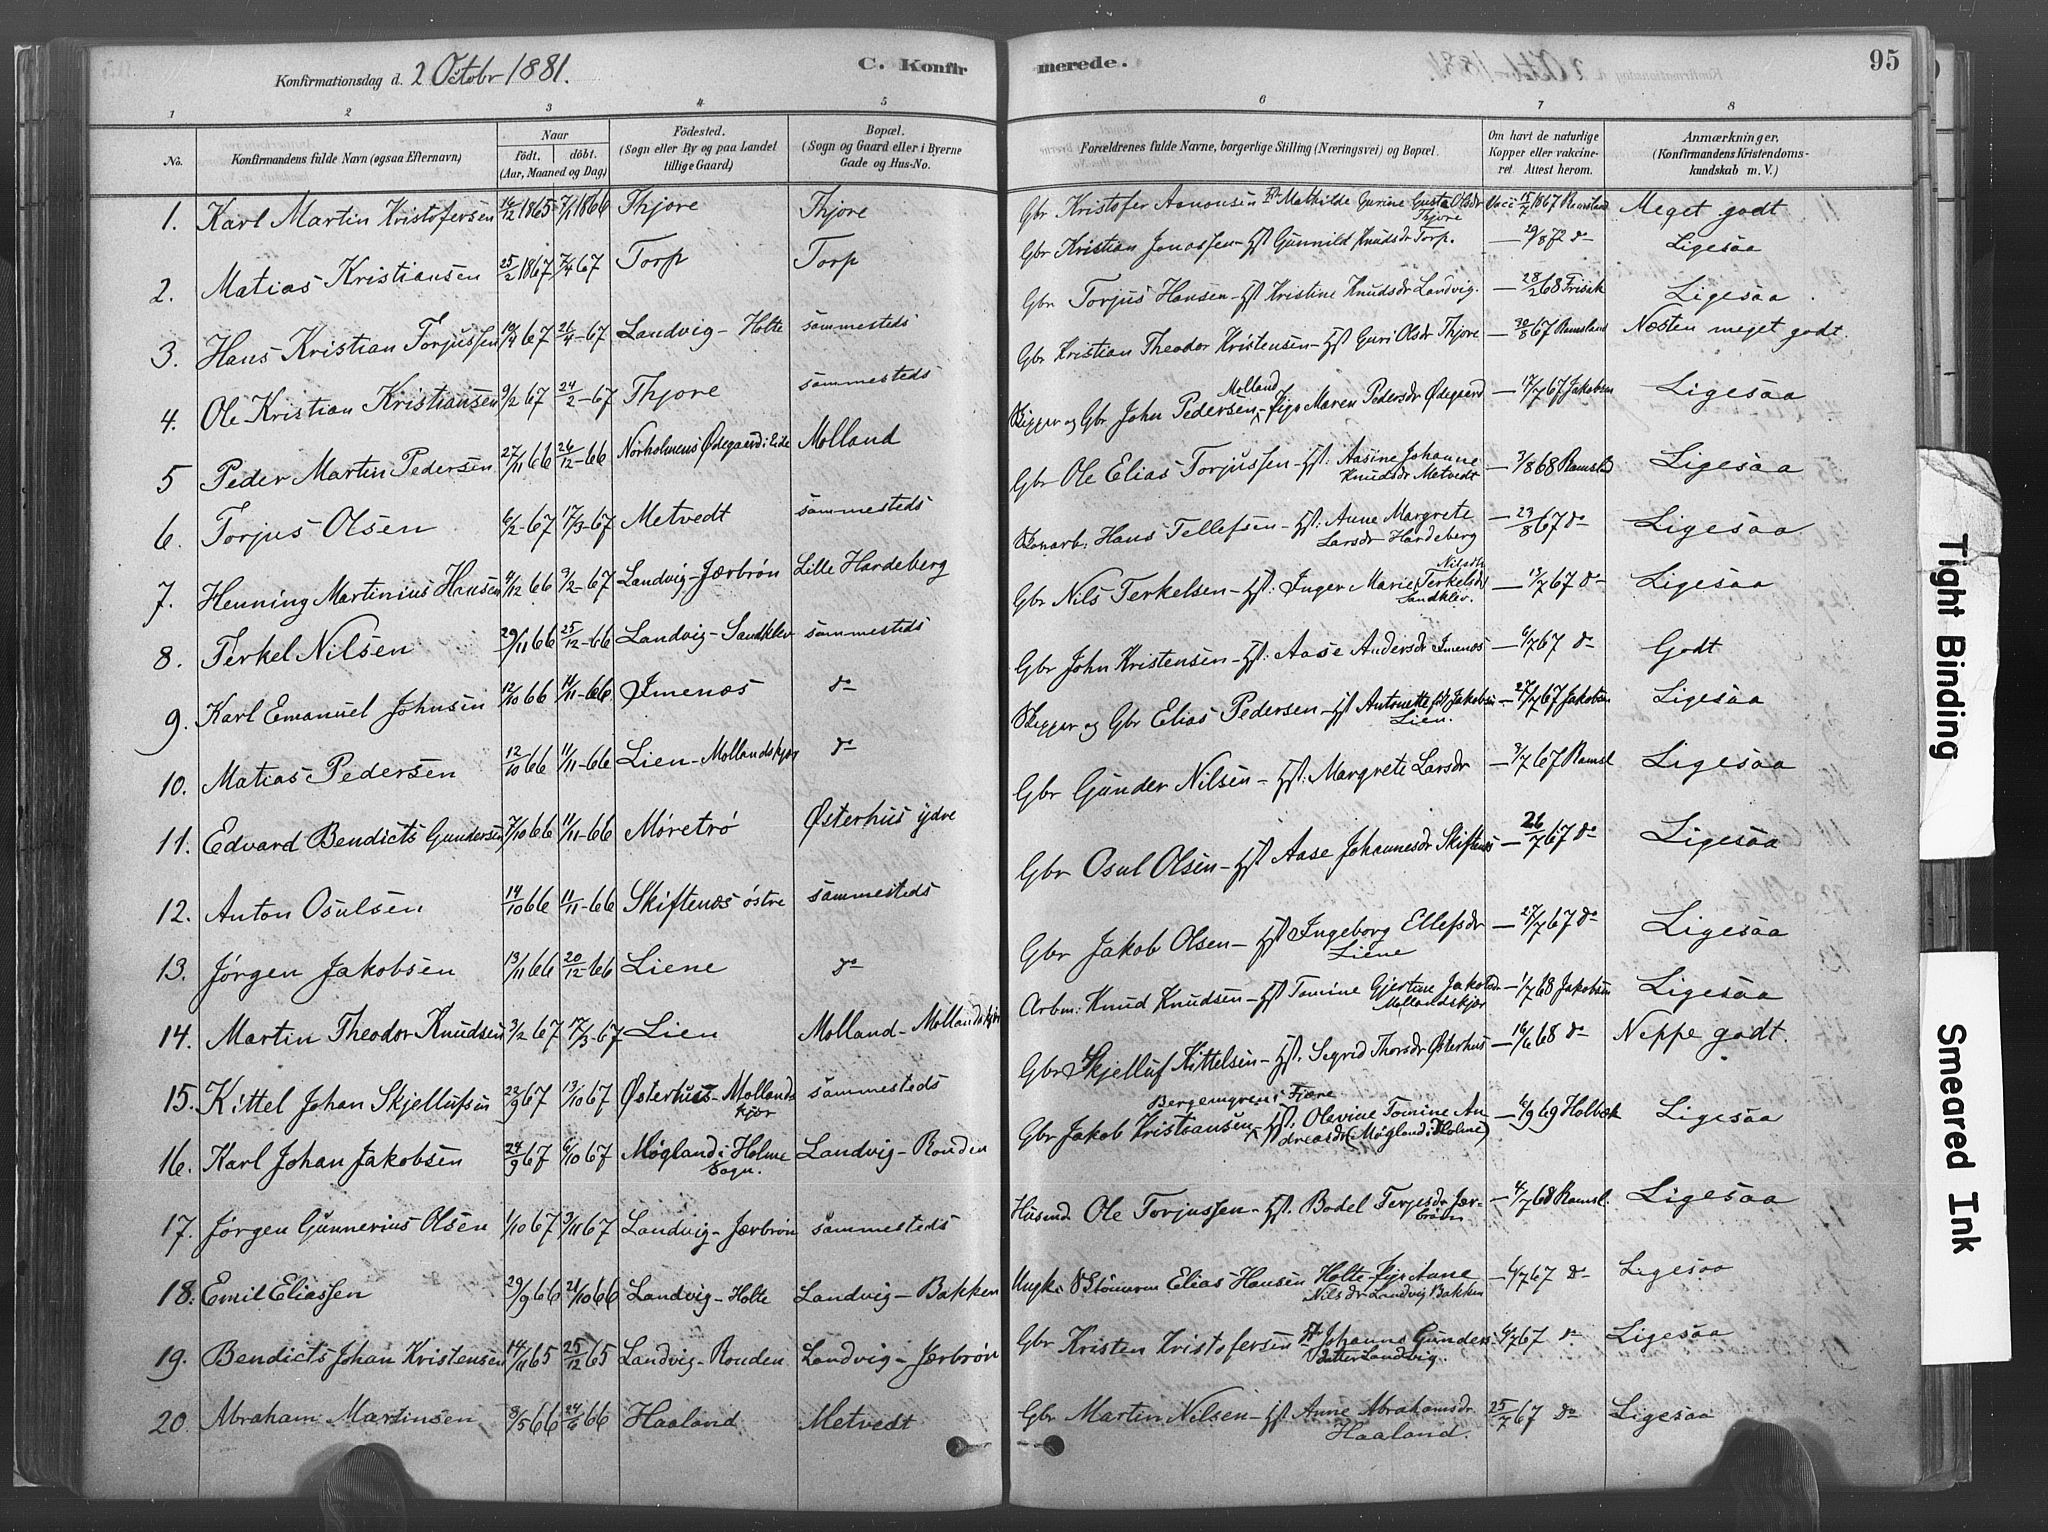 Konfirmationsdag d. 2 Octobr 1881. C. Konfirmerede. 95
1 2 3 4 5 6 7 8
No. Konfirmandens fulde Navn (ogsaa Efternavn) Naar Födt. döbt. (Aar, Maaned og Dag) Födested. (Sogn eller By og paa Landet tillige Gaard) Bopæl. (Sogn og Gaard eller i Byerne Gade og Hus-No. Forældrenes fulde Navne, borgerlige Stilling (Næringsvei) og Bopæl. Om havt de naturlige Kopper eller vaccineret. Attest herom. Anmærkninger. (Konfirmandens Kristendomskundskab m. V.)
1. Karl Martin Kristofersen 16/12 1865 7/1 1866 Thjore Thjore Gbr Kristofer Aanonsen Mathilde Gurine Gusta Olsdr Thjore Vacc 15/7 1867 Ramsland Meget godt
2. Matias Kristiansen 25/2 1867 7/4 67 Torp Torp Gbr Kristian Jonassen - Hst Gunnild Knudsdr Torp. - 29/8 72 do Ligesaa
3. Hans Kristian Torjussen 10/4 67 26/4-67 Landvig - Holte sammesteds Gbr Torjus Hansen - Hst Kristine Knudsdr Landvig. - 28/2 68 Frisak Ligesaa
4. Ole Kristian Kristiansen 9/2 67 24/2-67 Thjore sammesteds Gbr Kristian Theodor Kristensen - Hst Guri Olsdr Thjore - 30/8 67 Ramsland Næsten meget godt.
5 Peder Martin Pedersen 27/11 66 26/12-66 Norholmens Ødegaard i Eide Molland Skipper og Gbr John Pedersen Molland - Pige Maren Pedersdr Ødegaard - 17/7 67 Jakobsen Ligesaa
6. Torjus Olsen 6/2-67 17/3-67 Metvedt sammesteds Gbr Ole Elias Torjussen - Hst: Aasine Johanne Knudsdr Metvedt - 3/8 68 Ramsld Ligesaa
7. Henning Martinius Hansen 9/12 66 3/2-67 Landvig - Jærbrøn Lille Hardeberg Hans Tellefsen - Hst: Anne Margrete Larsdr Hardeberg - 23/8 67 do Ligesaa
8. Terkel Nilsen 29/11 66 25/12-66 Landvig - Sandklev sammesteds Gbr Nils Terkelsen - Hst: Inger Marie Nilsdtr Terkelsdr Sandklev. - 13/7 67 do Ligesaa
9. Karl Emanuel Johnsen 12/10 66 11/11-66 Imenæs do Gbr John Kristensen - Hst: Aase Andersdr Imenæs - 6/7 67 do Godt
10. Matias Pedersen 12/10 66 11/11-66 Lien - Mollandskjær do Skipper og Gbr Elias Pedersen - Hst Antonette f. Jakobsen Lien. - 27/7 67 Jakobsen Ligesaa
11. Edvard Bendicts Gundersen 7/10 66 11/11-66 Møretrø Østerhus ydre Gbr Gunder Nilsen - Hst: Margrete Larsdr - 3/7 67 Ramsl Ligesaa
12. Anton Osulsen 14/10 66 11/11-66 Skiftenæs østre sammesteds Gbr Osul Olsen - Hst Aase Johannesdr Skiftenæs - 26/7 67 do Ligesaa
13. Jørgen Jakobsen 13/11 66 20/12-66 Liene do Gbr Jakob Olsen - Hst Ingeborg Ellefsdr Liene - 27/7 67 do Ligesaa
14. Martin Theodor Knudsen 3/2 67 17/3-67 Lien Molland - Mollandskjær Arbm: Knud Knudsen - Hst Tomine Gjertine Jakobsdr Mollandskjær - 1/7 68 Jakobsen Ligesaa
15. Kittel Johan Skjellufsen 22/9 67 13/10 67 Østerhus - Mollandskjær sammesteds Gbr Skjelluf Kittelsen - Hst. Segrid Thorsdr Østerhus - 16/6 68 do Neppe godt.
16. Karl Johan Jakobsen 24/9 67 6/10 67 Møgland i Holme Sogn. Landvig - Ronden Gbr Jakob Kristiansen Bergemyren i Fjære - Hst. Olevine Tomine Andreasdr (Møgland i Holme) - 6/9 69 Holbæk Ligesaa
17. Jørgen Gunnerius Olsen 1/10 67 3/11 67 Landvig - Jærbrøn sammesteds Husmd Ole Torjussen - Hst. Bodel Terjesdr Jærbrøn - 4/7 68 Ramsl. Ligesaa
18. Emil Eliassen 29/9 66 21/10 66 Landvig - Holte Landvig - Bakken Ungk: Elias Hansen Holte - Pige Anne Nilsdr Landvig Bakken - 4/7 67 do Ligesaa
19. Bendicts Johan Kristensen 14/11 65 25/12 65 Landvig - Ronden Landvig - Jærbrøn Gbr Kristen Kristofersen Johanne Gundersdatter Landvig. 67 do Ligesaa
20. Abraham Martinsen 8/5 66 24/6 66 Haaland Metvedt Gbr Martin Nilsen - Hst Anne Abrahamsdr Haaland. 25/7 67 do Ligesaa
Tight Binding
Smeared Ink